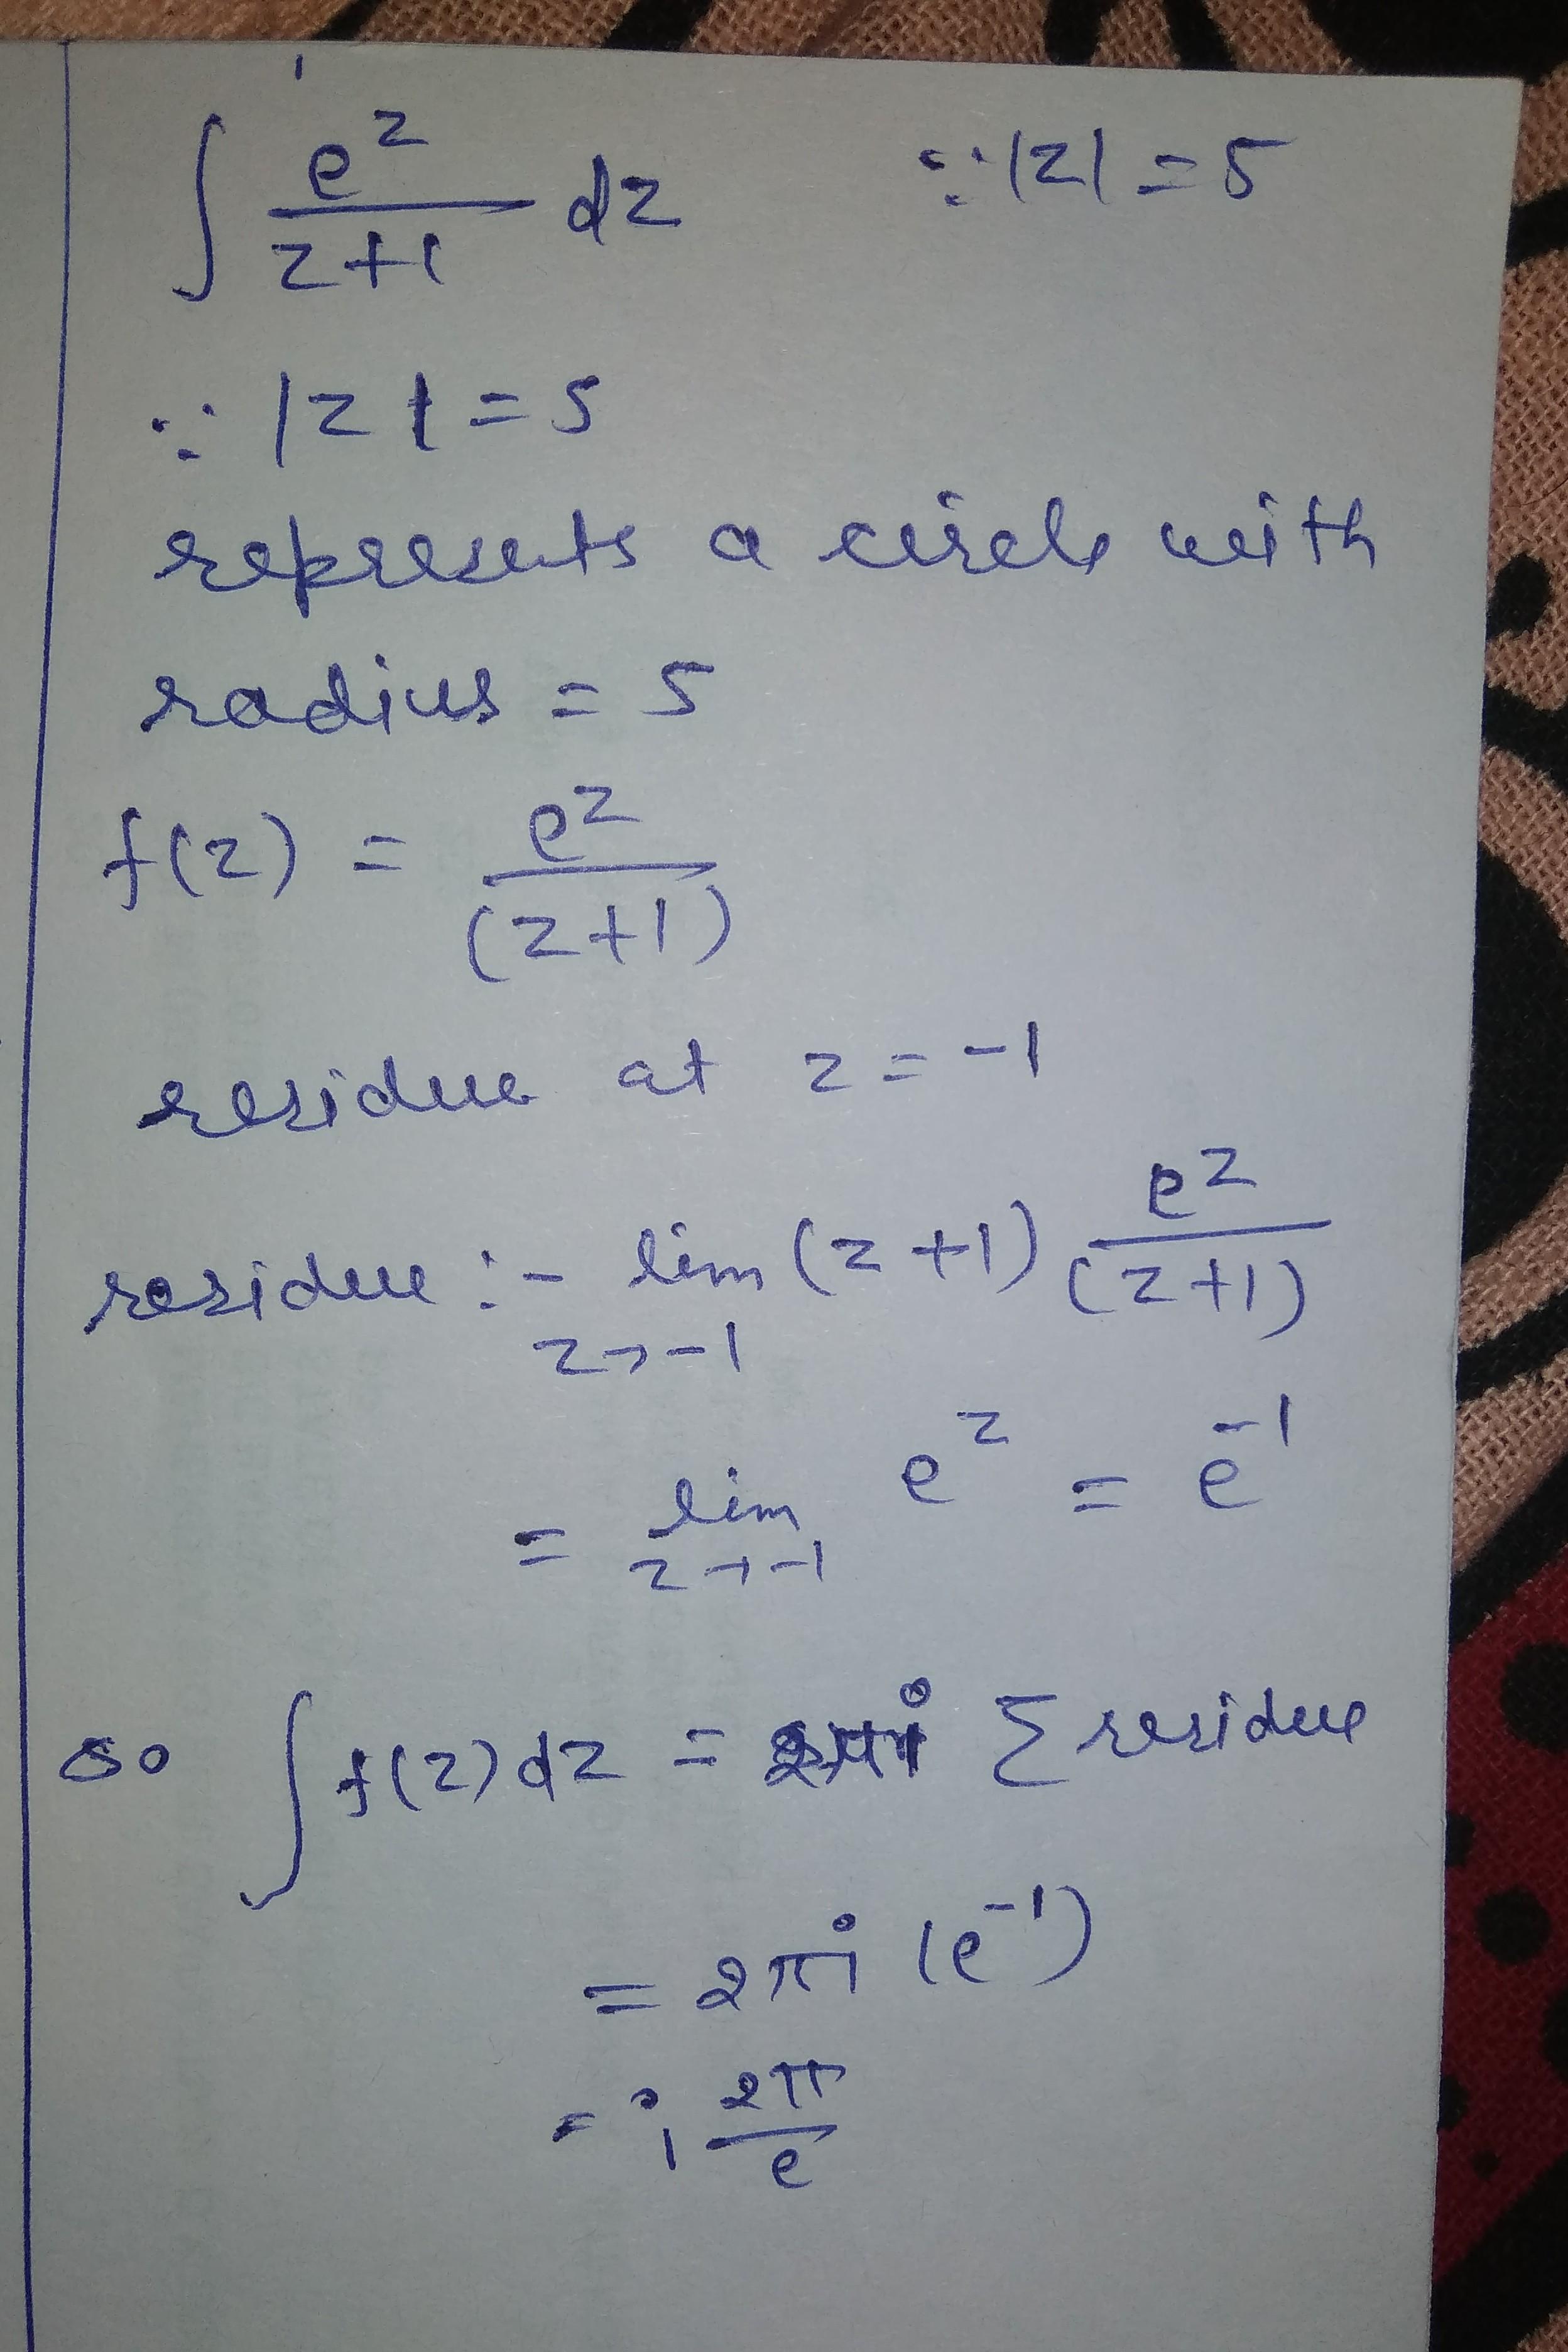 ∫ e^z/(z+1) dz ∵ |z| = 5
∵ |z| = 5
represents a circle with
radius = 5
f(z) = e^z/(z+1)
residue at z = -1
residue :- lim_{z→-1} (z+1) e^z/(z+1)
= lim_{z→-1} e^z = e^-1
so ∫ f(z) dz = 2πi Σ residue
= 2πi (e^-1)
= i 2π/e